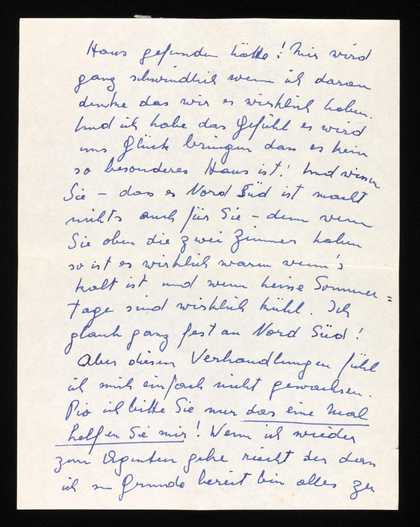 Haus gefunden hätte! Mir wird
ganz schwindlich wenn ich daran
denke das wir es wirklich haben.
Und ich habe das Gefühl es wird
uns Glück bringen dass es kein
so besonderes Haus ist! Und wissen
Sie – das es Nord Süd ist macht
nichts auch für Sie – denn wenn
Sie oben die zwei Zimmer haben
so ist es wirklich warm wenn's
kalt ist und wenn heisse Sommer=
tage sind wirklich kühl. Ich
glaub ganz fest an Nord Süd!
Aber diesen Verhandlungen fühl
ich mich einfach nicht gewachsen.
Pio ich bitte Sie nur das eine Mal
helfen Sie mir! Wenn ich wieder
zum Agenten gehe riecht der dass
ich im Grunde bereit bin alles zu